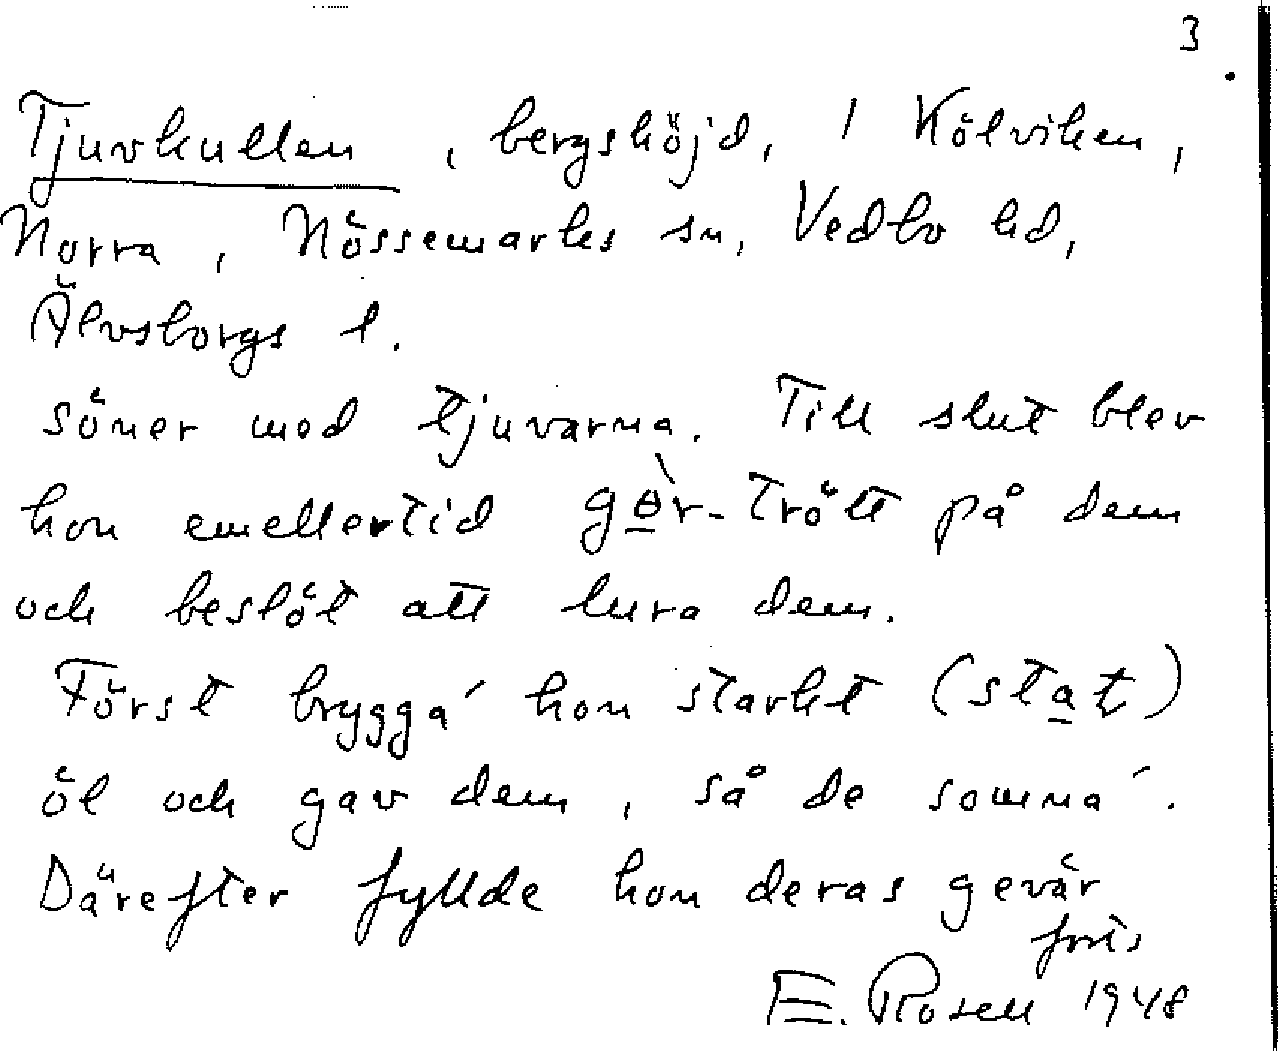 3
Tjuvkullen, bergshöjd, / Kölviken,
Norra, Nössemarks sn, Vedbo hd,
Älvsborgs l.
söner med tjuvarna. Till slut blev
hon emellertid gɵ̀r-trött på dem
och beslöt att lura dem.
Först brygga´ hon starkt (stat)
öl och gav dem, så de somna´.
Därefter fyllde hon deras gevär
forts
E. Rosell 1948